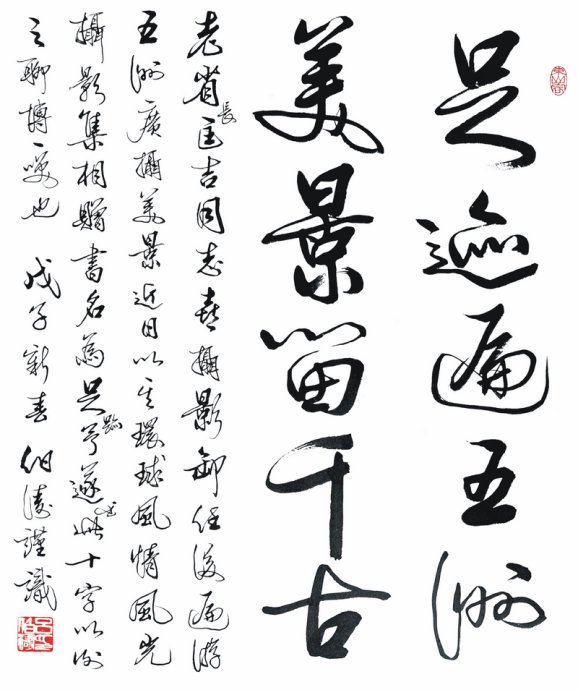 足迹遍五洲
美景留千古
老省長匡吉同志喜攝影卸任後遍游
五洲廣攝美景近日以其環球風情風光
攝影集相贈書名為足跡予遂此十字以謝
之聊博一噱也 戊子新春 伯濤謹識